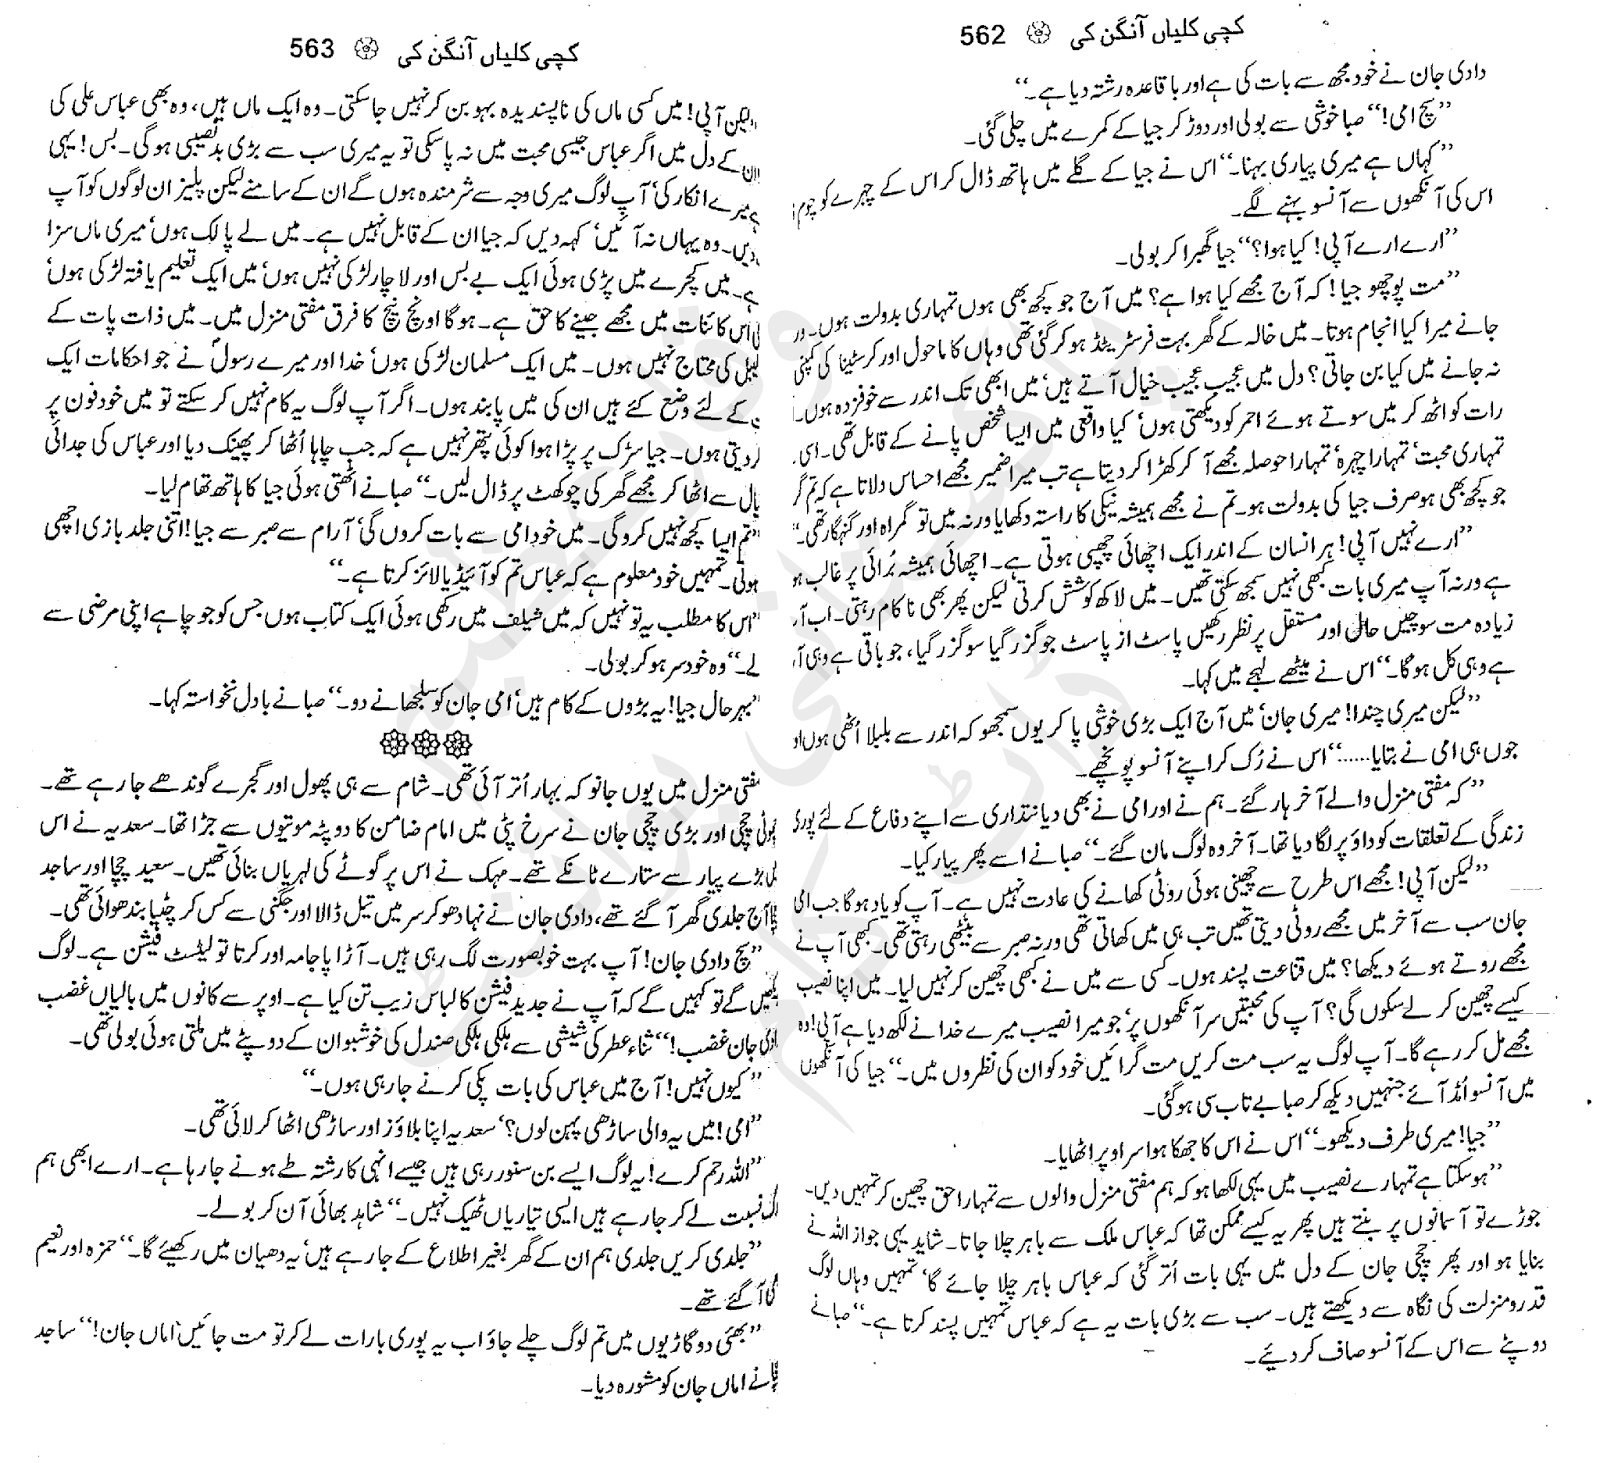 کچی کلیاں آنگن کی 562
دادی جان نے خود مجھ سے بات کی ہے اور باقاعدہ رشتہ دیا ہے۔‘‘
’’سچ امی!‘‘ صبا خوشی سے بولی اور دوڑ کر جیا کے کمرے میں چلی گئی۔
’’کہاں ہے میری پیاری بہنا۔‘‘ اس نے جیا کے گلے میں ہاتھ ڈال کر اس کے چہرے کو چوم
اس کی آنکھوں سے آنسو بہنے لگے۔
’’ارے ارے آپی! کیا ہوا؟‘‘ جیا گھبرا کر بولی۔
’’مت پوچھو جیا! کہ آج مجھے کیا ہوا ہے؟ میں آج جو کچھ بھی ہوں تمہاری بدولت ہوں۔ ور
جانے میرا کیا انجام ہوتا۔ میں خالہ کے گھر بہت فرسٹریٹڈ ہو کر گئی تھی وہاں کا ماحول اور کرسٹینا کی کمپنی
نہ جانے میں کیا بن جاتی؟ دل میں عجیب عجیب خیال آتے ہیں‘ میں ابھی تک اندر سے خوفزدہ ہوں۔
رات کو اٹھ کر میں سوتے ہوئے احمر کو دیکھتی ہوں‘ کیا واقعی میں ایسا شخص پانے کے قابل تھی۔ اسی
تمہاری محبت‘ تمہارا چہرہ‘ تمہارا حوصلہ مجھے آ کر کھڑا کر دیتا ہے تب میرا ضمیر مجھے احساس دلاتا ہے کہ تم
جو کچھ بھی ہو صرف جیا کی بدولت ہو۔ تم نے مجھے ہمیشہ نیکی کا راستہ دکھایا ورنہ میں تو گمراہ اور گنہگار تھی۔‘‘
’’ارے نہیں آپی! ہر انسان کے اندر ایک اچھائی چھپی ہوتی ہے۔ اچھائی ہمیشہ برائی پر غالب ہو
ہے ورنہ آپ میری بات کبھی نہیں سمجھ سکتی تھیں۔ میں لاکھ کوشش کرتی لیکن پھر بھی ناکام رہتی۔ اب آ
زیادہ مت سوچیں حال اور مستقل پر نظر رکھیں پاسٹ از پاسٹ جو گزر گیا سو گزر گیا، جو باقی ہے وہی آ
ہے وہی کل ہوگا۔‘‘ اس نے میٹھے لہجے میں کہا۔
’’لیکن میری چندا! میری جان‘ میں آج ایک بڑی خوشی پا کر یوں سمجھو کہ اندر سے بلبلا اُٹھی ہوں اور
جوں ہی امی نے بتایا......‘‘ اس نے رُک کر اپنے آنسو پونچھے۔
’’کہ مفتی منزل والے آخر ہار گئے۔ ہم نے اور امی نے بھی دیانتداری سے اپنے دفاع کے لئے پوری
زندگی کے تعلقات کو داؤ پر لگا دیا تھا۔ آخر وہ لوگ مان گئے۔‘‘ صبا نے اسے پھر پیار کیا۔
’’لیکن آپی! مجھے اس طرح سے چھینی ہوئی روٹی کھانے کی عادت نہیں ہے۔ آپ کو یاد ہوگا جب امی
جان سب سے آخر میں مجھے روٹی دیتی تھیں تب ہی میں کھاتی تھی ورنہ صبر سے بیٹھی رہتی تھی۔ کبھی آپ نے
مجھے روتے ہوئے دیکھا؟ میں قناعت پسند ہوں۔ کسی سے میں نے کبھی چھین کر نہیں لیا۔ میں اپنا نصیب
کیسے چھین کر لے سکوں گی؟ آپ کی محبتیں سر آنکھوں پر‘ جو میرا نصیب میرے خدا نے لکھ دیا ہے آپی! وہ
مجھے مل کر رہے گا۔ آپ لوگ یہ سب مت کریں مت گرائیں خود کو ان کی نظروں میں۔‘‘ جیا کی آنکھوں
میں آنسو اُمڈ آئے جنہیں دیکھ کر صبا بے تاب سی ہو گئی۔
’’جیا! میری طرف دیکھو۔‘‘ اس نے اس کا جھکا ہوا سر اوپر اٹھایا۔
’’ہو سکتا ہے تمہارے نصیب میں یہی لکھا ہو کہ ہم مفتی منزل والوں سے تمہارا حق چھین کر تمہیں دیں۔
جوڑے تو آسمانوں پر بنتے ہیں پھر یہ کیسے ممکن تھا کہ عباس ملک سے باہر چلا جاتا۔ شاید یہی جواز اللہ نے
بنایا ہو اور پھر چچی جان کے دل میں یہی بات اُتر گئی کہ عباس باہر چلا جائے گا‘ تمہیں وہاں لوگ
قدر و منزلت کی نگاہ سے دیکھتے ہیں۔ سب سے بڑی بات یہ ہے کہ عباس تمہیں پسند کرتا ہے۔‘‘ صبا نے
دوپٹے سے اس کے آنسو صاف کر دیئے۔
کچی کلیاں آنگن کی 563
لیکن آپی! میں کسی ماں کی ناپسندیدہ بہو بن کر نہیں جا سکتی۔ وہ ایک ماں ہیں، وہ بھی عباس علی کی
ان کے دل میں اگر عباس جیسی محبت میں نہ پا سکی تو یہ میری سب سے بڑی بدنصیبی ہوگی۔ بس! یہی
میرے انکار کی‘ آپ لوگ میری وجہ سے شرمندہ ہوں گے ان کے سامنے لیکن پلیز ان لوگوں کو آپ
دیں۔ وہ یہاں نہ آئیں‘ کہہ دیں کہ جیا ان کے قابل نہیں ہے۔ میں لے پالک ہوں‘ میری ماں سزا
ہے۔ میں کچرے میں پڑی ہوئی ایک بے بس اور لاچار لڑکی نہیں ہوں‘ میں ایک تعلیم یافتہ لڑکی ہوں‘
اس کائنات میں مجھے جینے کا حق ہے۔ ہوگا اونچ نیچ کا فرق مفتی منزل میں۔ میں ذات پات کے
لیبل کی محتاج نہیں ہوں۔ میں ایک مسلمان لڑکی ہوں‘ خدا اور میرے رسولؐ نے جو احکامات ایک
کے لئے وضع کئے ہیں ان کی میں پابند ہوں۔ اگر آپ لوگ یہ کام نہیں کر سکتے تو میں خود فون پر
کر دیتی ہوں۔ جیا سڑک پر پڑا ہوا کوئی پتھر نہیں ہے کہ جب چاہا اُٹھا کر پھینک دیا اور عباس کی جدائی
سے اٹھا کر مجھے گھر کی چوکھٹ پر ڈال لیں۔‘‘ صبا نے اٹھتی ہوئی جیا کا ہاتھ تھام لیا۔
’’تم ایسا کچھ نہیں کرو گی۔ میں خود امی سے بات کروں گی‘ آرام سے صبر سے جیا! اتنی جلد بازی اچھی
ہوتی۔ تمہیں خود معلوم ہے کہ عباس تم کو آئیڈیالائز کرتا ہے۔‘‘
’’اس کا مطلب یہ تو نہیں کہ میں شیلف میں رکھی ہوئی ایک کتاب ہوں جس کو جو چاہے اپنی مرضی سے
لے۔‘‘ وہ خود سر ہو کر بولی۔
’’بہرحال جیا! یہ بڑوں کے کام ہیں‘ امی جان کو سلجھانے دو۔‘‘ صبا نے بادل نخواستہ کہا۔
مفتی منزل میں یوں جانو کہ بہار اُتر آئی تھی۔ شام سے ہی پھول اور گجرے گوندھے جا رہے تھے۔
چھوٹی چچی اور بڑی چچی جان نے سرخ پٹی میں امام ضامن کا دوپٹہ موتیوں سے جڑا تھا۔ سعدیہ نے اس
بڑے پیار سے ستارے ٹانکے تھے۔ مہک نے اس پر گوٹے کی لہریاں بنائی تھیں۔ سعید چچا اور ساجد
آج جلدی گھر آ گئے تھے، دادی جان نے نہا دھو کر سر میں تیل ڈالا اور جگنی سے کس کر چٹیا بندھوائی تھی۔
’’سچ دادی جان! آپ بہت خوبصورت لگ رہی ہیں۔ آڑا پاجامہ اور کرتا تو لیٹسٹ فیشن ہے۔ لوگ
دیکھیں گے تو کہیں گے کہ آپ نے جدید فیشن کا لباس زیب تن کیا ہے۔ اوپر سے کانوں میں بالیاں غضب
دادی جان غضب!‘‘ ثناء عطر کی شیشی سے ہلکی ہلکی صندل کی خوشبو ان کے دوپٹے میں ملتی ہوئی بولی تھی۔
’’کیوں نہیں! آج میں عباس کی بات پکی کرنے جا رہی ہوں۔‘‘
’’امی! میں یہ والی ساڑھی پہن لوں؟‘ سعدیہ اپنا بلاؤز اور ساڑھی اٹھا کر لائی تھی۔
’’اللہ رحم کرے! یہ لوگ ایسے بن سنور رہی ہیں جیسے انہی کا رشتہ طے ہونے جا رہا ہے۔ ارے ابھی ہم
نسبت لے کر جا رہے ہیں ایسی تیاریاں ٹھیک نہیں۔‘‘ شاہد بھائی آن کر بولے۔
’’جلدی کریں جلدی ہم ان کے گھر بغیر اطلاع کے جا رہے ہیں‘ یہ دھیان میں رکھیئے گا۔‘‘ حمزہ اور نعیم
آ گئے تھے۔
’’بھئی دو گاڑیوں میں تم لوگ چلے جاؤ اب یہ پوری بارات لے کر تو مت جائیں‘ اماں جان!‘‘ ساجد
نے اماں جان کو مشورہ دیا۔